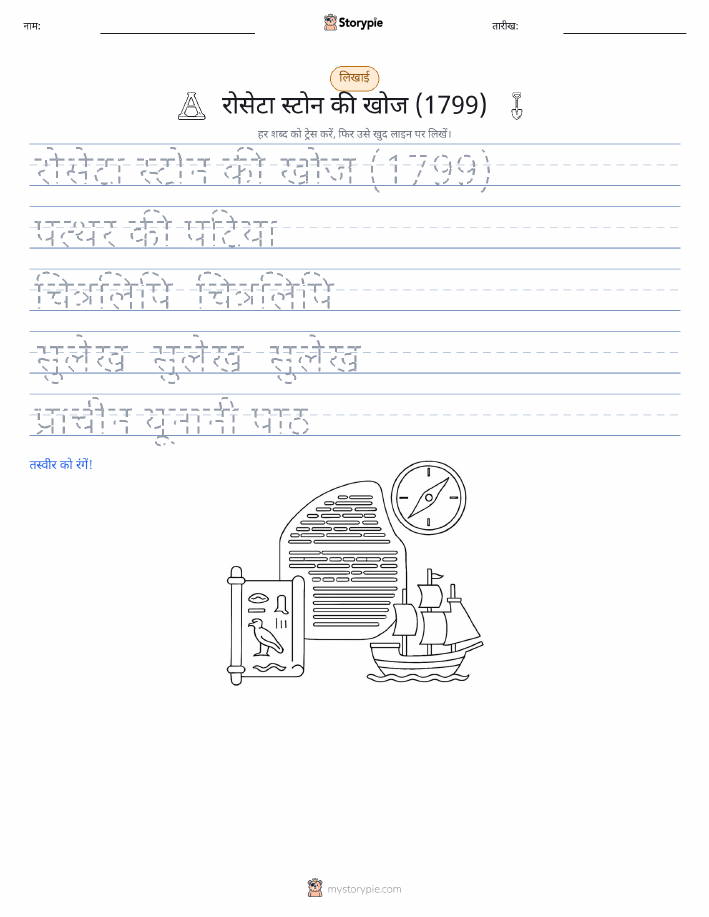 नाम:
Storypie
तारीख:
लिखाई
रोसेटा स्टोन की खोज (1799)
हर शब्द को ट्रेस करें, फिर उसे खुद लाइन पर लिखें।
रोसेटा स्टोन की खोज (1799)
पत्थर की पटिया
चित्रलिपि चित्रलिपि
सुलेख सुलेख सुलेख
प्राचीन यूनानी पाठ
तस्वीर को रंगें!
mystorypie.com